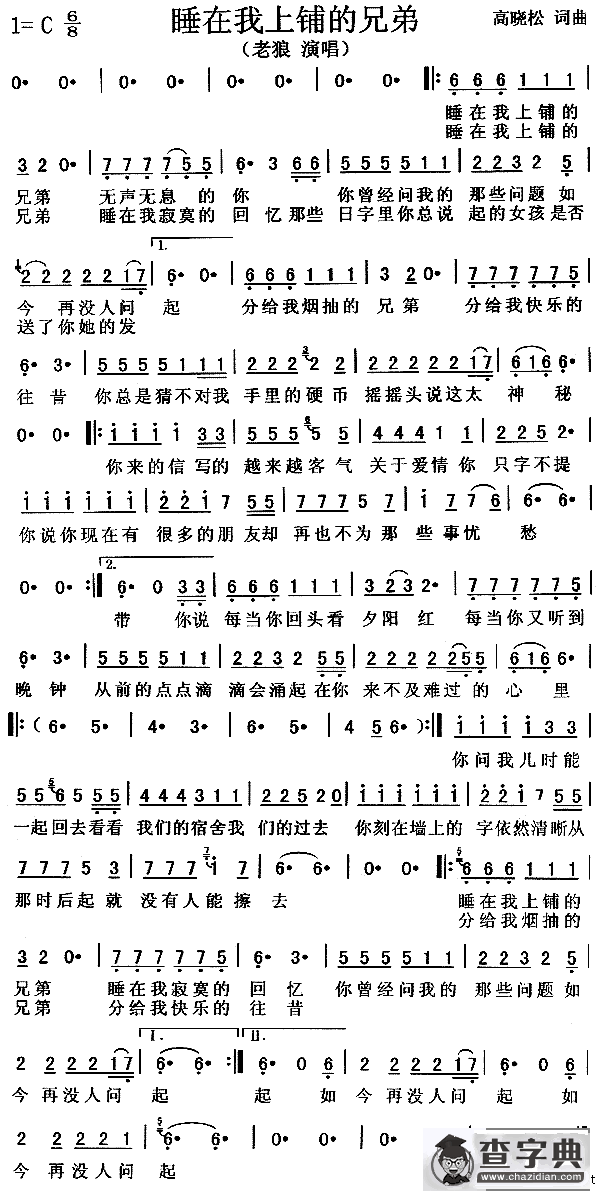 1=C 6/8 睡在我上铺的兄弟 高晓松 词曲
(老狼 演唱)
0· 0· | 0· 0· | 0· 0· | 0· 0· |: 6 6 6 1 1 1 |
睡在我上铺的
睡在我上铺的
3 2 0· | 7 7 7 7 5 5 | 6· 3 6 6 | 5 5 5 5 1 1 | 2 2 2 3 2 5 |
兄第 无声无息 的你 你曾经问我的 那些问题 如
兄弟 睡在我寂寞的 回忆那些 日字里你总说 起的女孩是否
1.
2 2 2 2 2 1 7 | 6· 0· | 6 6 6 1 1 1 | 3 2 0· | 7 7 7 7 7 5 |
今 再没人问 起 分给我烟抽的 兄第 分给我快乐的
送了你她的发
6· 3· | 5 5 5 5 1 1 1 | 2 2 2 2 2 | 2 2 2 2 2 1 7 | 6 1 6 6· |
往昔 你总是猜不对我 手里的硬币 摇摇头说这太 神秘
0· 0· |: 1 1 1 1 3 3 | 5 5 5 5 5 | 4 4 4 4 1 1 | 2 2 5 2· |
你来的信写的 越来越客气 关于爱情你 只字不提
1 1 1 1 1 1 | 2 2 1 7 5 5 | 2 2 2 3 5 7 | 1 7 7 6 | 6· 0· |
你说你现在有 很多的朋友却 再也不为那 些事忧 愁
2.
0· 0· :| 6· 0 3 3 | 6 6 6 1 1 1 | 3 2 3 2· | 7 7 7 7 7 5 |
带 你说 每当你回头看 夕阳红 每当你又听到
6· 3· | 5 5 5 5 1 1 | 2 2 3 2 5 5 | 2 2 2 2 2 5 5 | 6 1 6 6· |
晚钟 从前的点点滴 滴会涌起在你 来不及难过的 心里
|: ( 6· 5· | 4· 3· | 6· 5· | 4 5 6· ) :| 1 1 1 1 3 3 |
你问我儿时能
5 5 6 5 5 5 | 4 4 4 3 1 1 | 2 2 5 2 0 | 1 1 1 1 1 1 | 2 2 1 7 5 5 |
一起回去看看 我们的宿舍我 们的过去 你刻在墙上的 字依然清晰从
7 7 7 5 3 | 7 7 7 1 7 | 6· 6· | 0· 0· |: 6 6 6 1 1 1 |
那时后起就 没有人能擦去 睡在我上铺的
分给我烟抽的
3 2 0· | 7 7 7 7 7 5 | 6· 3· | 5 5 5 5 1 1 | 2 2 3 2 5 |
兄第 睡在我寂寞的 回忆 你曾经问我的 那些问题如
兄第 分给我快乐的 往昔
I. II.
2 2 2 2 1 7 | 6· 6· :| 6· 0 0 2 | 2 2 2 2 1 7 | 6· 0 0 2 |
今 再没人问 起 起如 今再没人问 起如
2 2 2 2 1 | 6· 6· | 0· 0· |
今 再没人问 起
查字典
www.chazidian.com
t